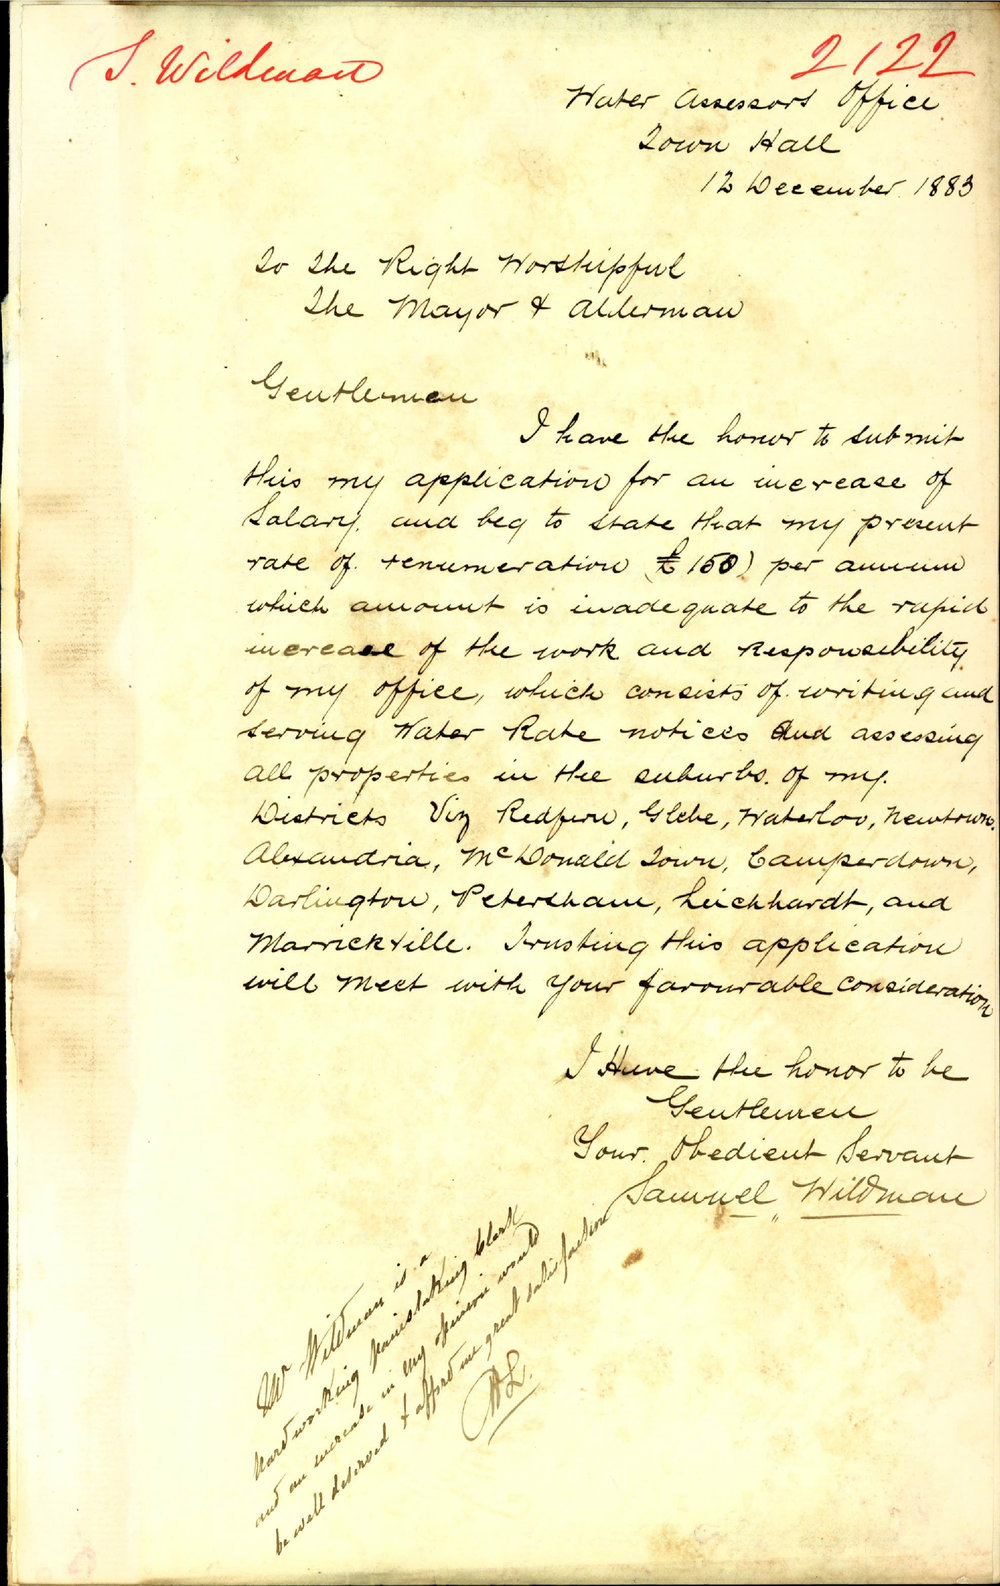 S. Wildman
2122
Water Assessors Office
Town Hall
12 December 1883
To The Right Worshipful
The Mayor & Alderman
Gentlemen
I have the honor to submit
this my application for an increase of
Salary. and beg to state that my present
rate of renumeration (£150) per annum
which amount is inadequate to the rapid
increase of the work and Responsibility
of my office, which consists of writing and
serving Water Rate notices and assessing
all properties in the suburbs. of my.
Districts Viz Redfern, Glebe, Waterloo, Newtown,
Alexandria, McDonald Town, Camperdown,
Darlington, Petersham, Leichhardt, and
Marrickville. Trusting this application
will meet with your favourable consideration
I Have the honor to be
Gentlemen
Your. Obedient Servant
Samuel Wildman
Mr Wildman is a
hardworking painstaking clerk
and an increase in my opinion would
be well deserved & afford me great satisfaction